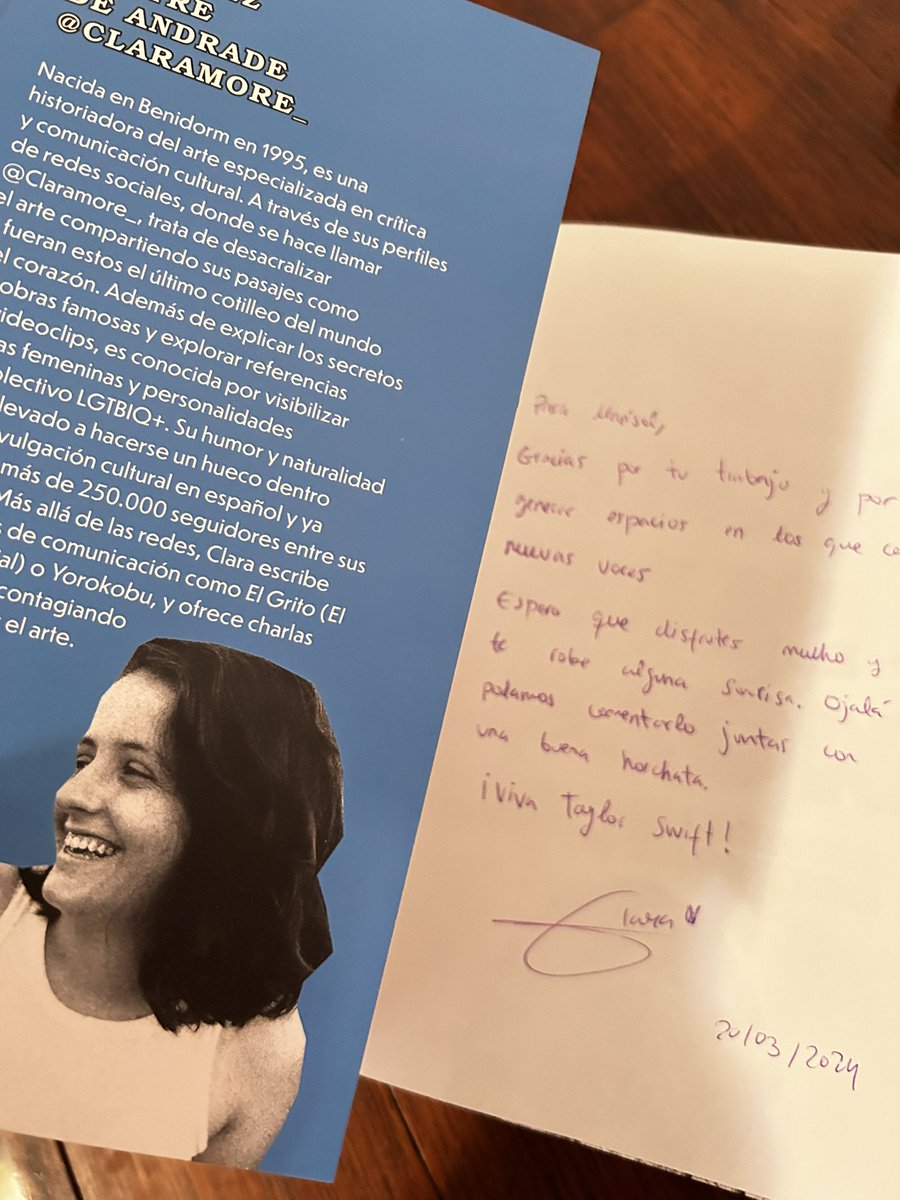 DE ANDRADE
@CLARAMORE_
Nacida en Benidorm en 1995, es una
historiadora del arte especializada en crítica
y comunicación cultural. A través de sus perfiles
de redes sociales, donde se hace llamar
@Claramore_, trata de desacralizar
el arte compartiendo sus pasajes como
fueran estos el último cotilleo del mundo
el corazón. Además de explicar los secretos
obras famosas y explorar referencias
videoclips, es conocida por visibilizar
as femeninas y personalidades
olectivo LGTBIQ+. Su humor y naturalidad
levado a hacerse un hueco dentro
vulgación cultural en español y ya
más de 250.000 seguidores entre sus
Más allá de las redes, Clara escribe
s de comunicación como El Grito (El
al) o Yorokobu, y ofrece charlas
contagiando
r el arte.
Para Marisol,
Gracias por tu trabajo y por
generar espacios en los que
nuevas voces
Espero que disfrutes mucho y
te robe alguna sonrisa. Ojalá
podamos comentarlo juntas con
una buena horchata.
¡Viva Taylor Swift!
Clara
20/03/2024